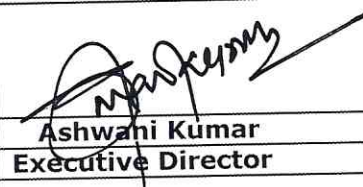 Ashwani Kumar
Executive Director